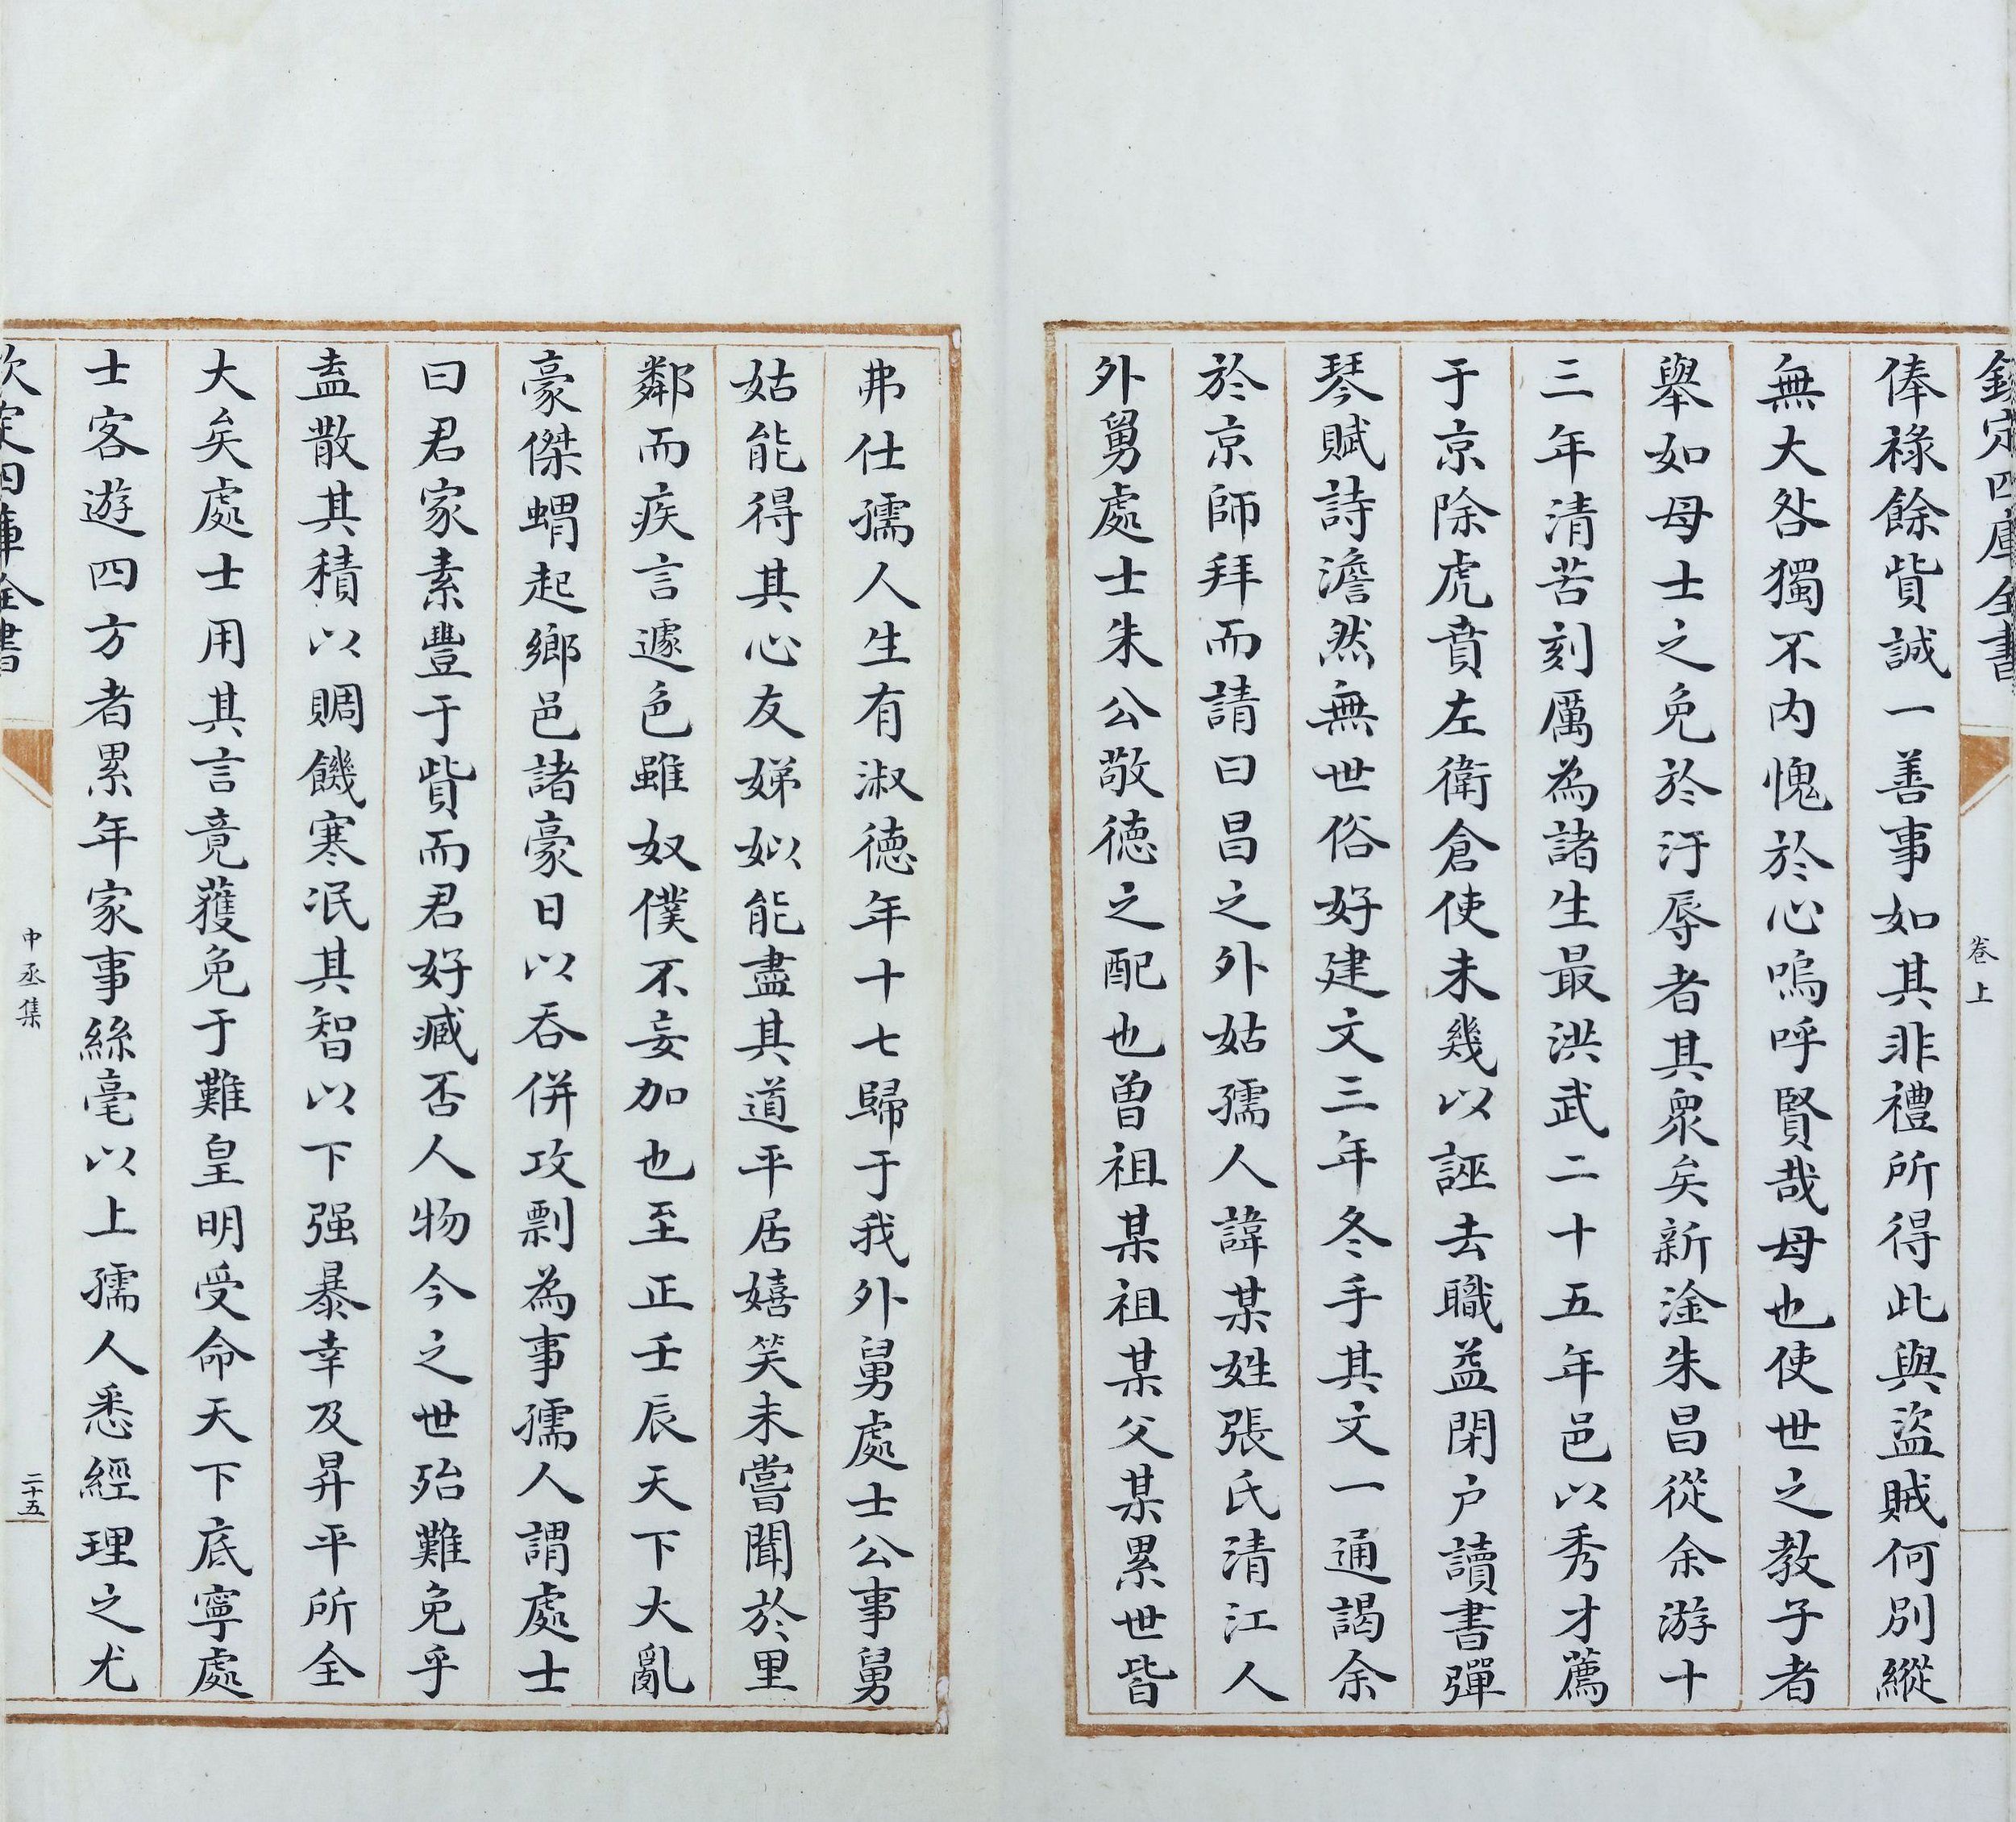 欽定四庫全書
卷上
俸祿餘貲誠一善事如其非禮所得此與盜賊何別縱
無大咎獨不内愧於心嗚呼賢哉母也使世之教子者
舉如母士之免於汙辱者其衆矣新淦朱昌從余游十
三年清苦刻厲為諸生最洪武二十五年邑以秀才薦
于京除虎賁左衛倉使未幾以誣去職益閉户讀書彈
琴賦詩澹然無世俗好建文三年冬手其文一通謁余
於京師拜而請曰昌之外姑孺人諱某姓張氏清江人
外舅處士朱公敬德之配也曽祖某祖某父某累世皆
弗仕孺人生有淑德年十七歸于我外舅處士公事舅
姑能得其心友娣姒能盡其道平居嬉笑未嘗聞於里
鄰而疾言遽色雖奴僕不妄加也至正壬辰天下大亂
豪傑蝟起鄉邑諸豪日以吞併攻剽為事孺人謂處士
曰君家素豐于貲而君好臧否人物今之世殆難免乎
盍散其積以賙饑寒氓其智以下强暴幸及昇平所全
大矣處士用其言竟獲免于難皇明受命天下底寧處
士客遊四方者累年家事絲毫以上孺人悉經理之尤
欽定四庫全書
中丞集
二十五